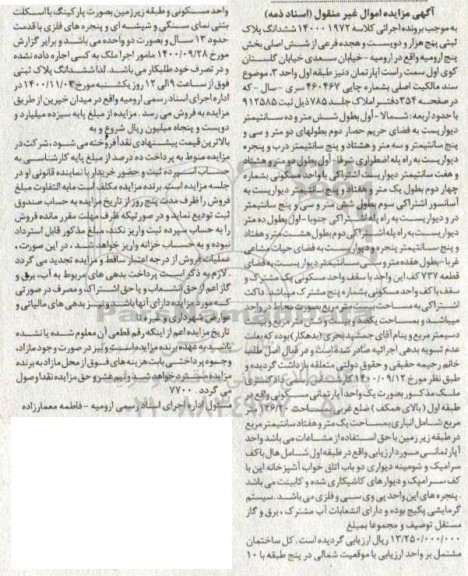 آگهی مزایده اموال غیر منقول (اسناد ذمه)
به موجب پرونده اجرائی کلاسه ۱۴۰۰۰۱۹۷۲ ششدانگ پلاک
ثبتی پنج هزار و دویست و هجده فرعی از شش اصلی بخش
پنج ارومیه واقع در ارومیه - خیابان سعدی خیابان گلستان
کوی اول سمت راست آپارتمان دنیز طبقه اول واحد ۳، موضوع
سند مالکیت اصلی بشماره چاپی ۴۶۰۴۶۷ سری - سال - که
در صفحه ۳۵۴ دفتر املاک جلد ۷۸۵ ذیل ثبت ۹۱۲۵۸۵
با حدود اربعه: شمالا - اول بطول شش متر و ده سانتیمتر
دیواریست به فضای حریم حصار دوم بطولهای دو متر و سی و
پنج سانتیمتر و سه متر و هشتاد و پنج سانتیمتر درب و پنجره
دیواریست به راه پله اضطراری شرقا - اول بطول دو متر و هشتاد
و هفت سانتیمتر دیواریست اشتراکی با واحد مسکونی بشماره
چهار دوم بطول یک متر و هفتاد و پنج سانتیمتر دیواریست به
آسانسور اشتراکی سوم بطول شش متر و سی و پنج سانتیمتر
در و دیواریست به راه پله اشتراکی جنوبا - اول بطول ده متر
دیواریست به راه پله اشتراکی دوم بطول هشت متر و هفتاد
و پنج سانتیمتر پنجره و دیواریست به فضای حیات مشاعی
غربا - بطول هفده متر و سی سانتیمتر دیواریست به فضای
قطعه ۷۳۷ کف این واحد با سقف واحد مسکونی یک مشترک و
سقف با کف واحد مسکونی بشماره پنج مشترک میباشد داکت
اشتراکی به مساحت بیست سانتیمتر
میباشد و بمساحت یکصد و بیست و شش متر و بیست و یک
دسیمتر مربع و بنام آقای جمشید بحری (بدهکار) بوده که بعلت
عدم تسویه بدهی اجرائیه صادر شده است و در قبال اصل طلب
خانم رحیمه حقیقی و حقوق دولتی متعلقه بازداشت گردیده و
طبق نظر مورخ ۱۴۰۰/۰۹/۱۲ کارشناس رسمی دادگستری
ملک مذکور بصورت یک واحد آپارتمانی مسکونی واقع در
طبقه اول (بالای همکف) ضلع غربی به مساحت ۱۲۶/۲۰
مربع شامل انباری بمساحت یک متر و هفتاد سانتیمتر مربع
در طبقه زیر زمین با حق استفاده از مشاعات می باشد واحد
آپارتمانی مسورد ارزیابی واقع در طبقه اول شامل هال با کف
سرامیک و شومینه دیواری دو باب اتاق خواب آشپزخانه این با
کف سرامیک و دیوارهای کاشیکاری شده و کابینت می باشد
. پنجره های این واحد پی وی سی و فلزی می باشد . سیستم
گرمایشی پکیج بوده و دارای انشعابات آب مشترک ، برق و گاز
مستقل توصیف و مجموعا بمبلغ
۱۳/۲۵۰/۰۰۰/۰۰۰ ریال ارزیابی گردیده است . کل ساختمان
مشتمل بر واحد ارزیابی با موقعیت شمالی در پنج طبقه با ۱۰
واحد مسکونی و طبقه زیرزمین بصورت پارکینگ با اسکلت
بتنی نمای سنگی و شیشه ای و پنجره های فلزی با قدمت
حدود ۱۳ سال و بصورت دو واحده می باشد و برابر گزارش
مورخ ۱۴۰۰/۰۹/۲۸ مامور اجرا ملک به کسی اجاره داده نشده
و در تصرف خود طلبکار می باشد . لذا ششدانگ پلاک ثبتی
فوق از ساعت ۹ الی ۱۲ روز یکشنبه مورخ ۱۴۰۰/۱۱/۰۳ در
اداره اجرای اسناد رسمی ارومیه واقع در میدان خیبر رین از طریق
مزایده به فروش می رسد . مزایده از مبلغ پایه سیزده میلیارد و
دویست و پنجاه میلیون ریال شروع و به
بالاترین قیمت پیشنهادی نقدا فروخته می شود ، شرکت در
مزایده منوط به پرداخت ده درصد از مبلغ پایه کارشناسی به
حساب سپرده ثبت و حضور خریدار یا نماینده قانونی او در
جلسه مزایده است . برنده مزایده مکلف است مابه التفاوت مبلغ
فروش را ظرف مدت پنج روز از تاریخ مزایده به حساب صندوق
ثبت تودیع نماید و در صورتیکه ظرف مهلت مقرر مانده فروش
را به حساب سپرده ثبت واریز نکند ، مبلغ مذکور قابل استرداد
نبوده و به حساب خزانه واریز خواهد شد . در این صورت ،
عملیات فروش از درجه اعتبار ساقط و مزایده تجدید می گردد
. لازم به ذکر است پرداخت بدهی های مربوط به آب، برق و
گاز اعم از حق انشعاب و یا حق اشتراک و مصرف در صورتی
که مورد مزایده دارای آنها باشد و نیز بدهی های مالیاتی و
عوارض شهرداری و . . .
تاریخ مزایده اعم از اینکه رقم قطعی آن معلوم شده یا نشده
باشد به عهده برنده مزایده است و نیز در صورت وجود مازاد،
وجوه پرداختی بابت هزینه های فوق از محل مازاد به برنده
مزایده مسترد خواهد شد و نیم عشر و حق مزایده نقدا وصول
می گردد . ۷۷۰۰
مسئول اداره اجرای اسناد رسمی ارومیه - فاطمه معمارزاده